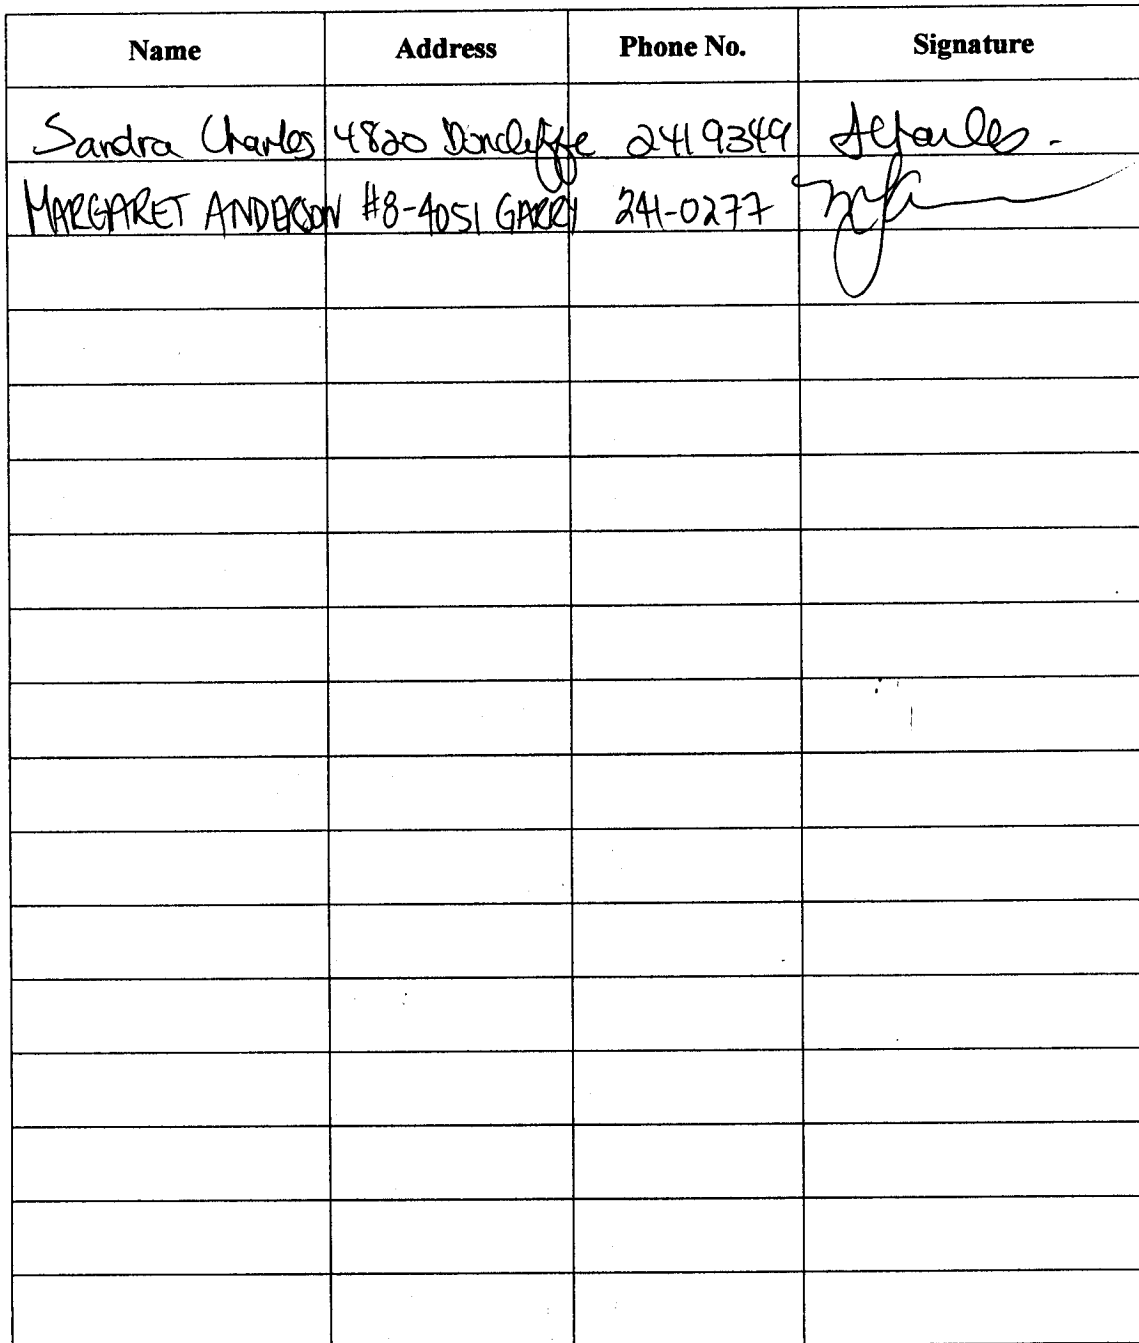 Name Address Phone No. Signature
Sandra Charles 4820 Duncliffe 2419349 SCharles.
MARGARET ANDERSON #8-4051 GARRY 241-0277